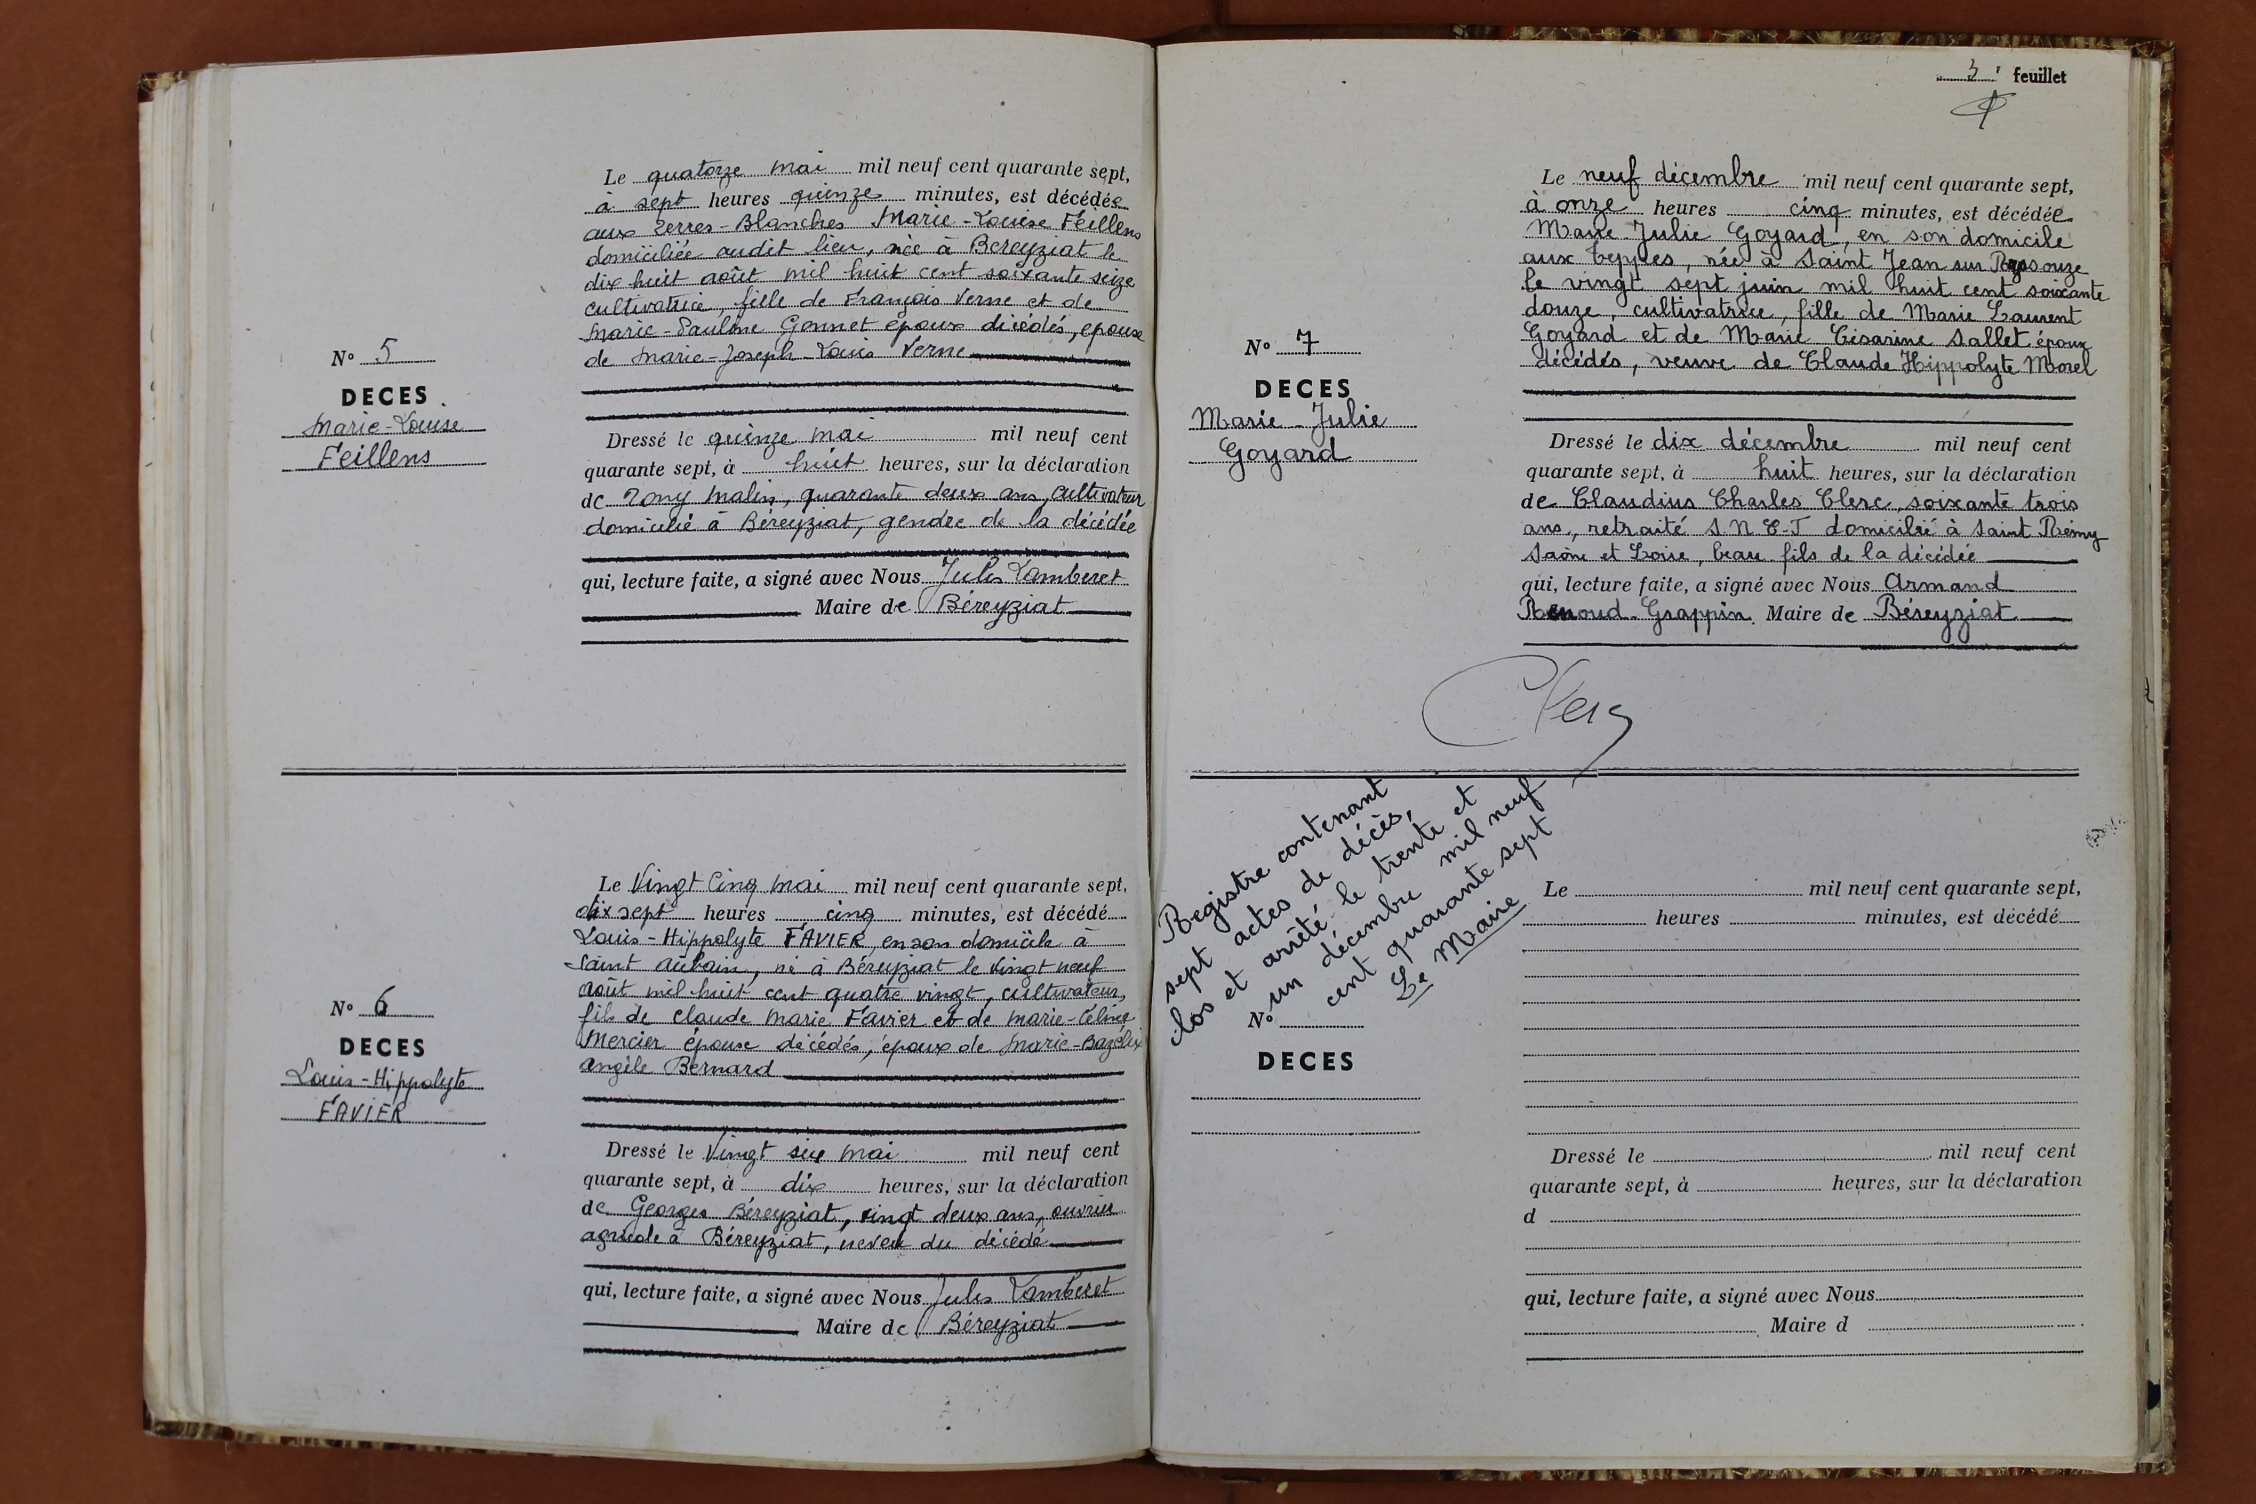 N° 5
DECES
Marie-Louise
Feillens
Le quatorze mai mil neuf cent quarante sept,
à sept heures quinze minutes, est décédée
aux Terres-Blanches Marie-Louise Feillens
domiciliée audit lieu, née à Béreyziat le
dix huit août mil huit cent soixante seize
cultivatrice, fille de François Verne et de
Marie-Pauline Gonnet époux décédés, epouse
de Marie-Joseph-Louis Verne
Dressé le quinze mai mil neuf cent
quarante sept, à huit heures, sur la déclaration
de Tony Malin, quarante deux ans, cultivateur
domicilié à Béreyziat, gendre de la décédée
qui, lecture faite, a signé avec Nous Jules Lamberet
Maire de Béreyziat
N° 6
DECES
Louis-Hippolyte
FAVIER
Le Vingt cinq mai mil neuf cent quarante sept,
dix sept heures cinq minutes, est décédé
Louis-Hippolyte FAVIER, en son domicile à
Saint aubain, né à Béreyziat le vingt neuf
août mil huit cent quatre vingt, cultivateur,
fils de Claude Marie Favier et de Marie-Céline
Mercier épouse décédés, époux de Marie-Bazélix
angèle Bernard
Dressé le Vingt six mai mil neuf cent
quarante sept, à dix heures, sur la déclaration
de Georges Béreyziat, vingt deux ans, ouvrier
agricole à Béreyziat, neveu du décédé
qui, lecture faite, a signé avec Nous Jules Lamberet
Maire de Béreyziat
3 feuillet
N° 7
DECES
Marie-Julie
Goyard
Le neuf décembre mil neuf cent quarante sept,
à onze heures cinq minutes, est décédée
Marie Julie Goyard, en son domicile
aux Teppes, née à Saint Jean sur Reyssouze
le vingt sept juin mil huit cent soixante
douze, cultivatrice, fille de Marie Laurent
Goyard et de Marie Césarine Sallet époux
décédés, veuve de Claude Hippolyte Morel
Dressé le dix décembre mil neuf cent
quarante sept, à huit heures, sur la déclaration
de Claudius Charles Clerc, soixante trois
ans, retraité S.N.C-F domicilié à Saint Rémy
Saône et Loire, beau fils de la décédée
qui, lecture faite, a signé avec Nous Armand
Renoud-Grappin. Maire de Béreyziat
Clerc
Registre contenant
sept actes de décès,
clos et arrêté le trente et
un décembre mil neuf
cent quarante sept
Le Maire
N°
DECES
Le mil neuf cent quarante sept,
heures minutes, est décédé
Dressé le mil neuf cent
quarante sept, à heures, sur la déclaration
d
qui, lecture faite, a signé avec Nous
Maire d